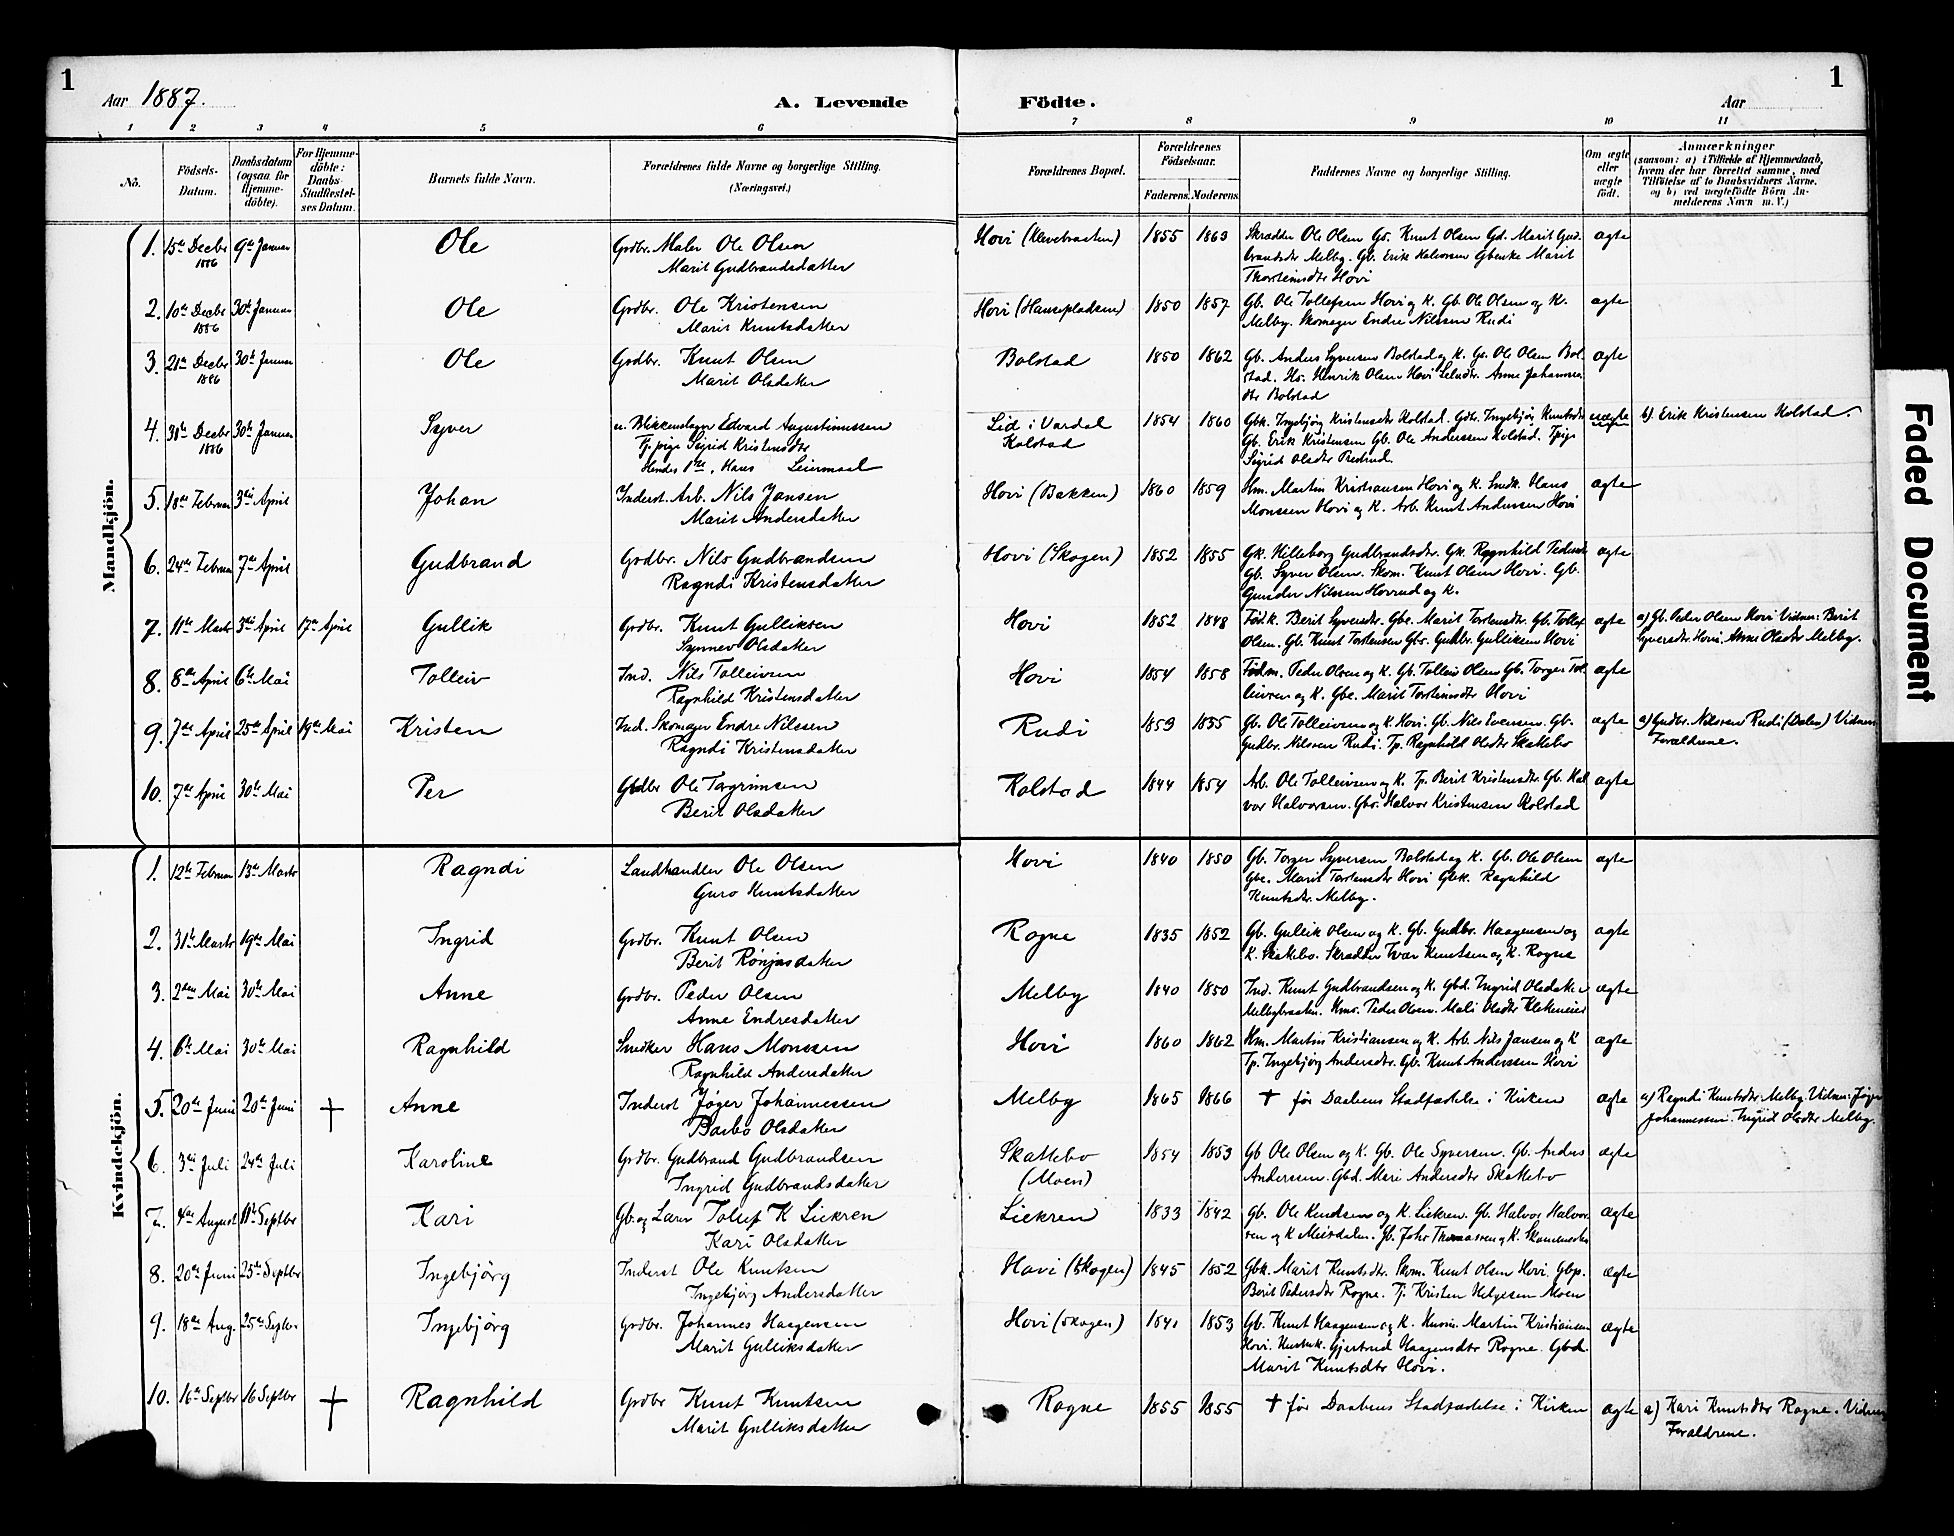 1
Aar 1887.
A. Levende
Födte.
Aar
1
1 2 3 4 5 6 7 8 9 10 11
No.
Födsels-
Datum.
Daabsdatum
(ogsaa for
Hjemme-
döbte).
For Hjemme-
döbte:
Daabs-
Stadfæstel-
ses Datum.
Barnets fulde Navn.
Forældrenes fulde Navne og borgerlige Stilling.
(Næringsvei.)
Forældrenes Bopæl.
Forældrenes
Födselsaar.
Faderens. Moderens.
Faddernes Navne og borgerlige Stilling.
Om ægte
eller
uægte
födt.
Anmærkninger
(saasom: a) i Tilfælde af Hjemmedaab,
hvem der har forrettet samme, med
Tilföielse af to Daabsvidners Navne,
og b) ved uægtefödte Börn An-
melderens Navn m. V.)
Mandkjön.
1. 15de Decbr 9de Januar Ole Grdbr. Maler Ole Olsen Hovi (Klevebraaten) 1855 1863 Skrædder Ole Olsen Gs. Knut Olsen Gd. Marit Gud- ægte
1886 Marit Gudbrandsdatter brandsdtr Melby. Gb. Erik Halvorsen Gbenke Marit
Thorsteinsdtr Hovi
2. 10de Decbr 30te Januar Ole Grdbr. Ole Kristensen Hovi (Haugepladsen) 1850 1857 Gb. Ole Tollefsen Hovi og K. Gb. Ole Olsen og K. ægte
1886 Marit Knutsdatter Melby. Skomager Endre Nilssen Rudi
3. 21de Decbr 30te Januar Ole Grdbr. Knut Olsen Bolstad 1850 1862 Gb. Anders Syversen Bolstad og K. Gs. Ole Olsen Bol- ægte
1886 Marit Olsdatter stad. Hs. Henrik Olsen Hovi Anne Johannes-
dtr Bolstad
4. 31te Decbr 30te Januar Syver u. Blikkenslager Edvard Augustinussen Lid i Vardal 1854 1860 Gbk. Ingebjörg Kristensdtr Kolstad. Gdtr. Ingebjör Knutsdtr uægte b). Erik Kristensen Kolstad.
1886 Tj.pige Sigrid Kristensdtr Kolstad Gb. Erik Kristensen Gb. Ole Anderssen Kolstad. Tpige
Hendes 1ste, Hans Leiermaal Sigrid Olsdtr
5. 18de Februar 3die April Johan Inderst. Arb. Nils Jansen Hovi (Bakken) 1860 1859 Hm. Martin Kristiansen Hovi og K. Snedk. Hans ægte
Marit Andersdatter Monssen Hovi og K. Arb. Knut Anderssen Hovi
6. 24de Februar 7de April Gudbrand Grdbr. Nils Gudbrandsen Hovi (Skogen) 1852 1855 Gk. Helleborg Gudbrandsdtr. Gk. Ragnhild Pedersdtr ægte
Ragndi Kristensdatter Gb. Syver Olsen. Skom. Knut Olsen Hovi. Gb.
Gunder Nilssen Hovrud og K.
7. 11te Marts 3die April 17de April Gullik Grdbr. Knut Gulliksen Hovi 1852 1848 Födk. Berit Syversdtr. Gbe. Marit Torstensdtr. Gb. Tollef ægte a) Gb. Peder Olsen Hovi Vidner: Berit
Synnev Olsdatter Olsen. Gb. Knut Torstensen Gbs. Gudbr. Gulliksen Hovi Syversdtr. Hovi. Anne Olsdtr Melby.
8. 8de April 6te Mai Tolleiv Ind. Nils Tolleivsen Hovi 1854 1858 Födm. Peder Olsen og K. Gb. Tolleiv Olsen Gb. Torger Tol- ægte
Ragnhild Kristensdatter leivsen og K. Gbe. Marit Torsteinsdtr Hovi
9. 7de April 25de April 19de Mai Kristen Ind. Skomager Endre Nilssen Rudi 1859 1855 Gb. Ole Tolleivsen og K. Hovi. Gb. Nils Evensen. Gb. ægte a) Gudbr. Nilssen Rudi (Dalen) Vidner
Ragndi Kristensdatter Gudbr. Nilssen Rudi. Tp. Ragnhild Olsdtr Skattebo Forældrene.
10. 7de April 30te Mai Per Grdbr Ole Torgrimsen Kolstad 1844 1854 Arb. Ole Tolleivsen og K. Tp. Berit Kristensdtr. Gb. Hal- ægte
Berit Olsdatter vor Halvorsen. Gbs. Halvor Kristensen Kolstad
Kvindekjön.
1. 12te Februar 13de Marts Ragndi Landhandler Ole Olsen Hovi 1840 1850 Gb. Torger Syversen Bolstad og K. Gb. Ole Olsen ægte
Guro Knutsdatter Gbe. Marit Torstensdtr Hovi Gbk. Ragnhild
Knutsdtr. Melby.
2. 31te Marts 19de Mai Ingrid Grdbr. Knut Olsen Rogne 1835 1852 Gb. Gulleik Olsen og K. Gb. Gudbr. Haagensen og ægte
Berit Rönjusdatter K. Skattebo. Skrædder Ivar Knutsen og K. Rogne
3. 2den Mai 30te Mai Anne Grdbr. Peder Olsen Melby 1840 1850 Ind. Knut Gudbrandsen og K. Gbd. Ingrid Olsdatter ægte
Anne Endresdatter Melbybraaten. Kms. Peder Olsen. Mali Olsdtr
4. 6te Mai 30te Mai Ragnhild Snedker Hans Monssen Hovi 1860 1862 Hm. Martin Kristiansen og K. Arb. Nils Jansen og K ægte
Ragnhild Andersdatter Tp. Ingebjörg Andersdtr. Gb. Knut Anderssen Hovi
5. 20de Juni 20de Juni † Anne Inderst Jöger Johannessen Melby 1865 1866 † för Daabens Stadfæstelse i Kirken ægte a) Ragndi Knutsdtr. Melby. Vidner: Jöger
Barbo Olsdatter Johannessen. Ingrid Olsdtr Melby.
6. 3die Juli 24de Juli Karoline Grdbr. Gudbrand Gudbrandsen Skattebo 1854 1853 Gb Ole Olsen og K. Gb. Ole Syversen. Gb. Anders ægte
Ingrid Gudbrandsdatter (Moen) Anderssen. Gbd. Mari Andersdtr Skattebo
7. 4de August 11te Septbr Kari Gb. og Lærer Tollef K Liekren Liekren 1833 1842 Gb. Ole Knudsen og K. Liekren. Gb. Halvor Halvor- ægte
Kari Olsdatter sen og K Meisdalen. Gb. John Thomassen og K.
8. 20de Juni 25de Septbr Ingebjörg Inderst Ole Knutsen Hovi (Skogen) 1845 1852 Gbk. Marit Knutsdtr. Skom. Knut Olsen Hovi. Gbp. ægte
Ingebjörg Andersdatter Berit Pedersdtr Rogne. Tj. Kristen Helgesen Moen
9. 18de Aug. 25de Septbr. Ingebjörg Grdbr. Johannes Haagensen Hovi (Skogen) 1841 1853 Gb. Knut Haagensen og K. Husm. Martin Kristiansen ægte
Marit Gulliksdatter Hovi. Gjertrud Haagensdtr Rogne. Gbd.
Marit Knutsdtr Hovi.
10. 16de Septbr 16 Septbr † Ragnhild Grdbr Knut Knutsen Rogne 1855 1855 † för Daabens Stadfæstelse i Kirken ægte a) Kari Knutsdtr Rogne. Vidner
Marit Gulliksdatter Forældrene.
Faded Document